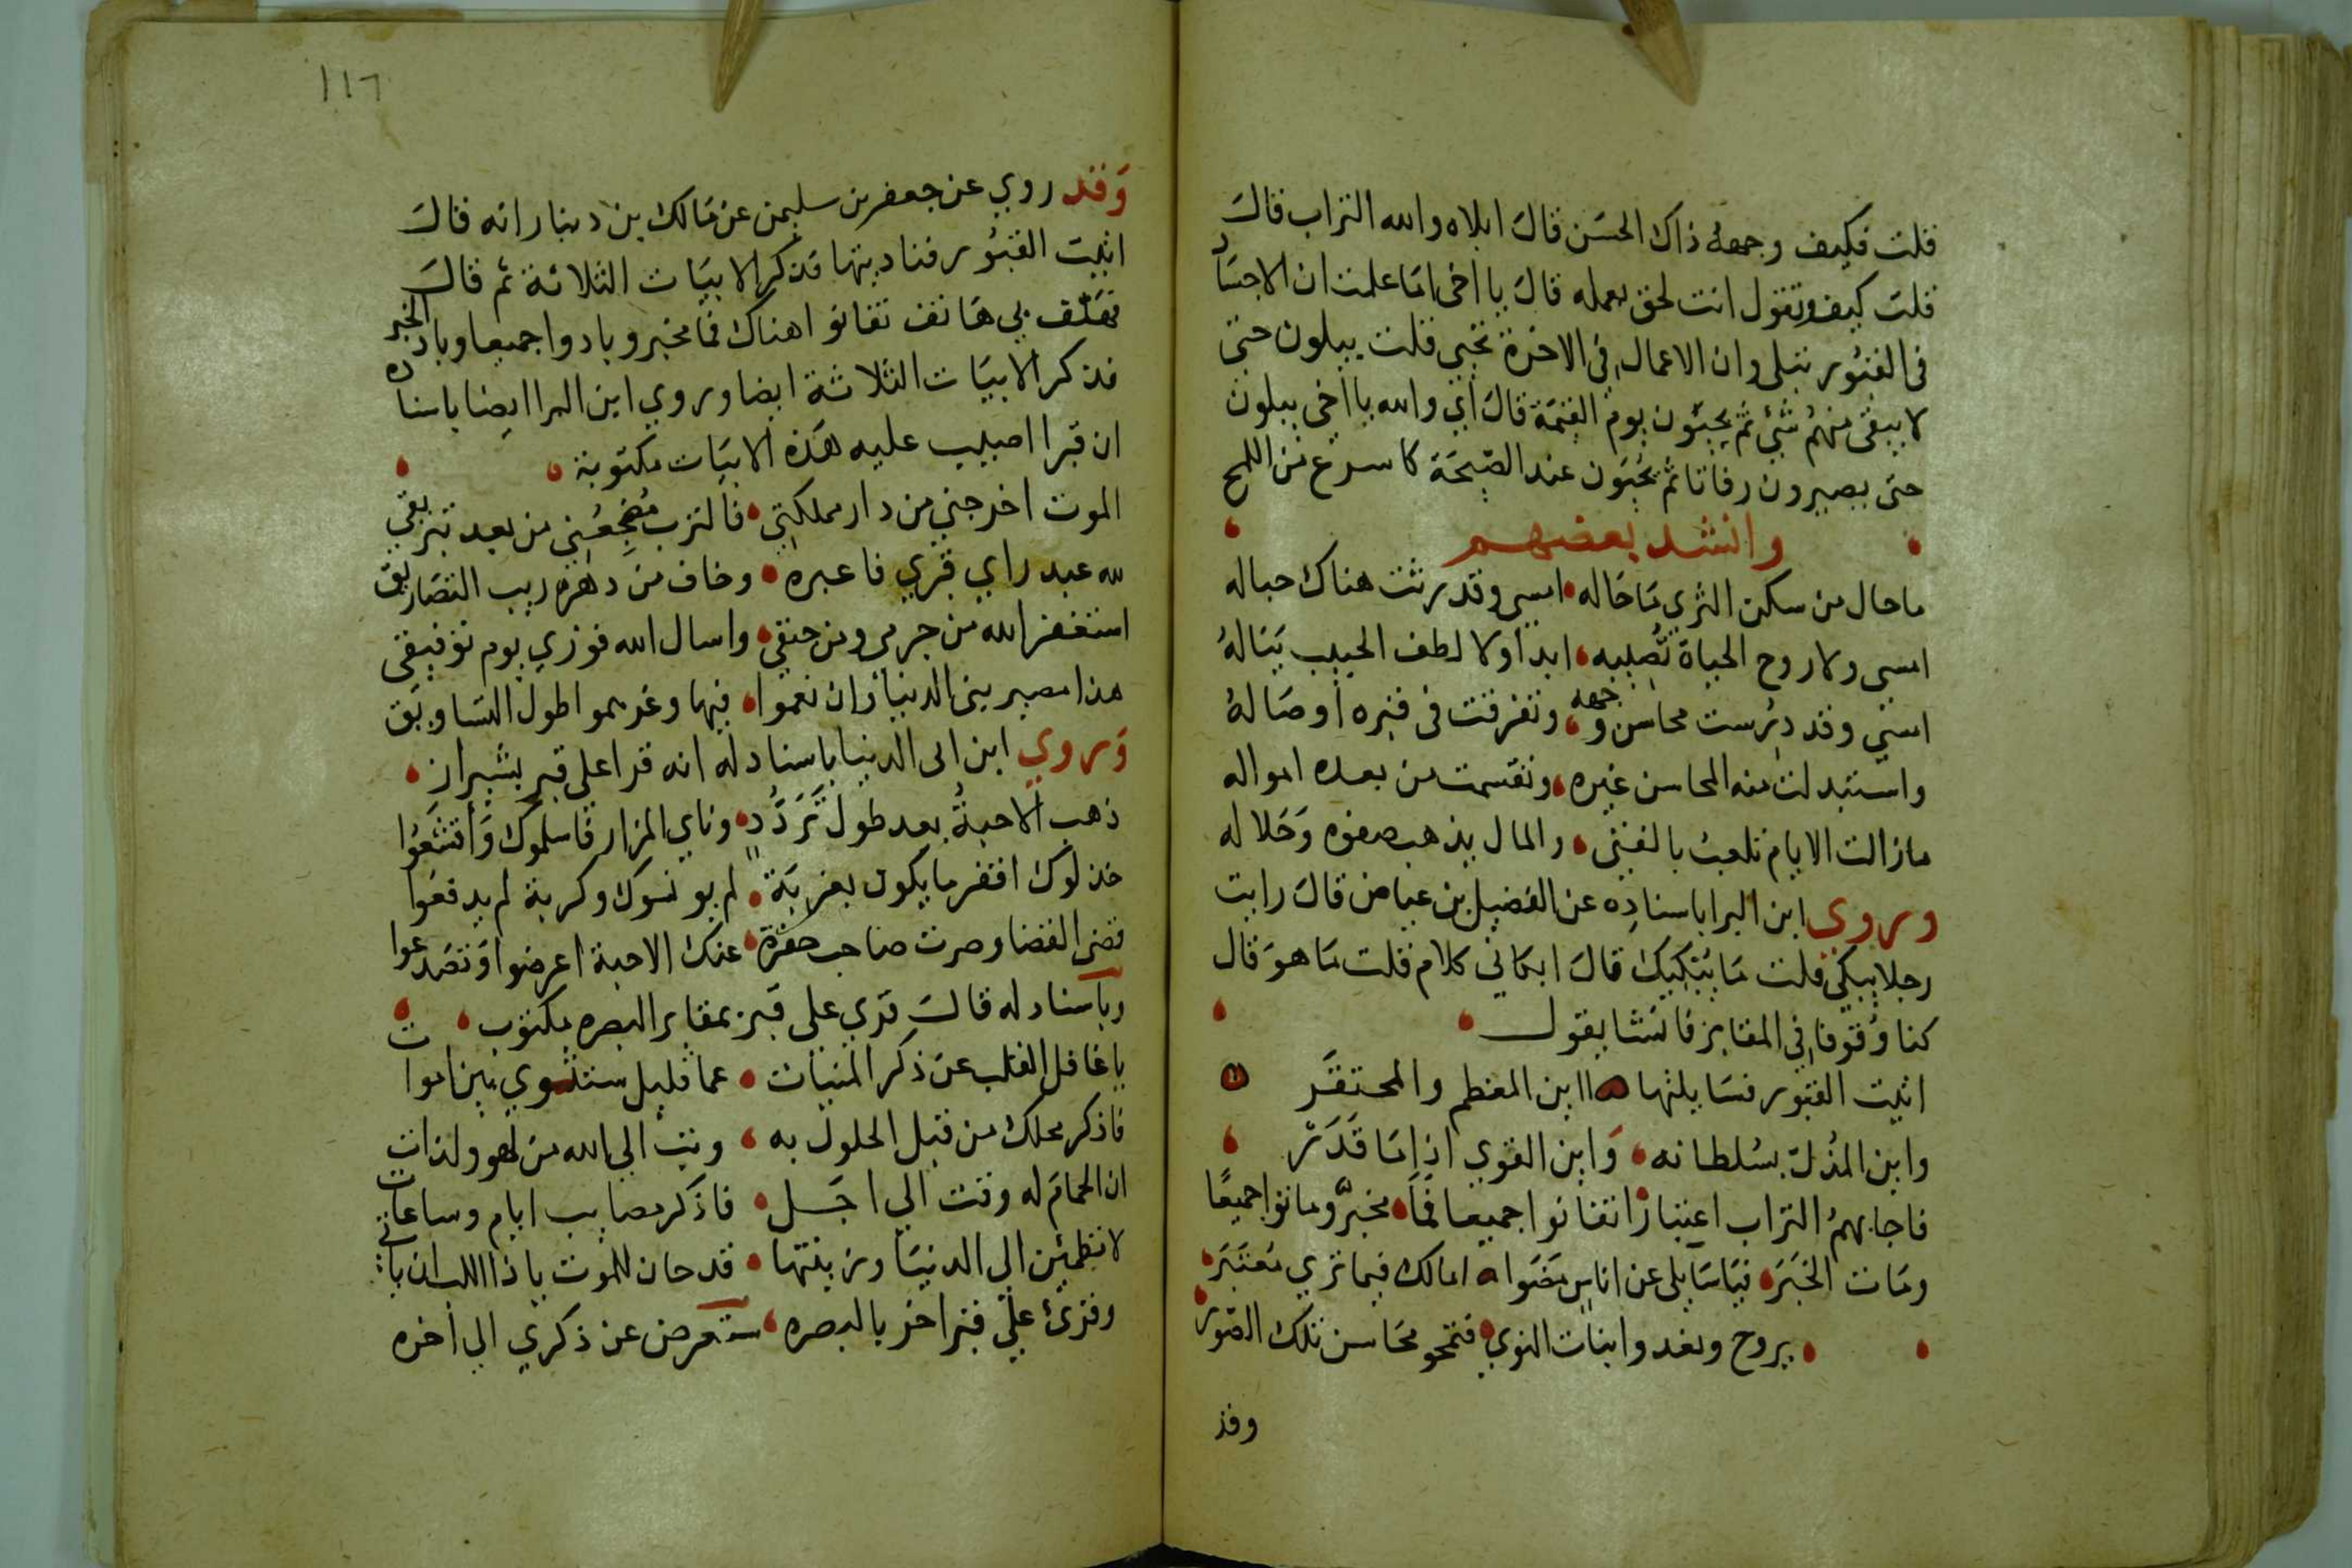 قلت فكيف وجهه ذاك الحسن قال ابلاه والله التراب قال
قلت كيف وتقول انت لحق بعمله قال يا اخى اما علمت ان الاجساد
فى القبور تبلى وان الاعمال فى الاخرة تحيى قلت يبلون حتى
لا يبقى منهم شئ ثم يحيون يوم القيمة قال اي والله يا اخى يبلون
حتى يصيرون رفاتا ثم يحيون عند الصيحة كاسرع من اللمح
وانشد بعضهم
ما حال من سكن الثرى ما حاله امسى وقد رثت هناك حباله
امسى ولا روح الحياة تصيبه ابدا ولا لطف الحبيب يناله
امسى وقد درست محاسن وجهه وتفرقت فى قبره اوصاله
واستبدلت منه المحاسن غيره وتقسمت من بعده امواله
ما زالت الايام تلعب بالفتى والمال يذهب صفوه وحلاله
وروي ابن البرا باسناده عن الفضيل بن عياض قال رايت
رجلا يبكي قلت ما يبكيك قال ابكانى كلام قلت ما هو قال
كنا وقوفا فى المقابر فانشا يقول
اتيت القبور فسايلتها اين المعظم والمحتقر
واين المذل بسلطانه واين القوي اذا ما قدر
فاجابهم التراب اعتبارا تفانوا جميعا فما مخبر وماتوا جميعا
ومات الخبر فيا سايلى عن اناس مضوا امالك فيما تري معتبر
يروح ويغدوا بنات الثوي فتمحو محاسن تلك الصور
وقد
١١٦
وقد روي عن جعفر بن سليمن عن مالك بن دينار انه قال
اتيت القبور فناديتها فذكر الابيات الثلاثة ثم قال
فهتف بي هاتف تفانوا هناك فما مخبر وبادوا جميعا وباد الخبر
فذكر الابيات الثلاثة ايضا وروي ابن البرا ايضا باسناده
ان قبرا اصيب عليه هذه الابيات مكتوبة
الموت اخرجني من دار مملكتي فالترب مضجعني من بعد تتريقي
لله عبد راي قبري فاعبره وخاف من دهره ريب التصاريق
استغفر الله من جرمي ومن حنقي واسال الله فوزي يوم توفيقى
هذا مصير بنى الدنيا وان نعموا فيها وغرهموا طول التساويق
وروي ابن ابى الدنيا باسناد له انه قرا على قبر بشيراز
ذهب الاحبة بعد طول تردد وناي المزار فاسلموك واقشعوا
خذلوك افقر ما يكون بغربة لم يونسوك وكربة لم يدفعوا
قضى القضا وصرت صاحب حفرة عنك الاحبة اعرضوا وتصدعوا
وباسناد له قال قري على قبر بمقابر البصره مكتوب
يا غافل القلب عن ذكر المنيات عما قليل ستثوي بين اموات
فاذكر محلك من قبل الحلول به وتب الي الله من لهو ولذات
ان الحمام له وقت الي اجل فاذكر مصايب ايام وساعات
لا تطمئن الي الدنيا وزينتها قد حان للموت يا ذا اللب ان ياتى
وقرئ علي قبر اخر بالبصره ستعرض عن ذكري الي اخره